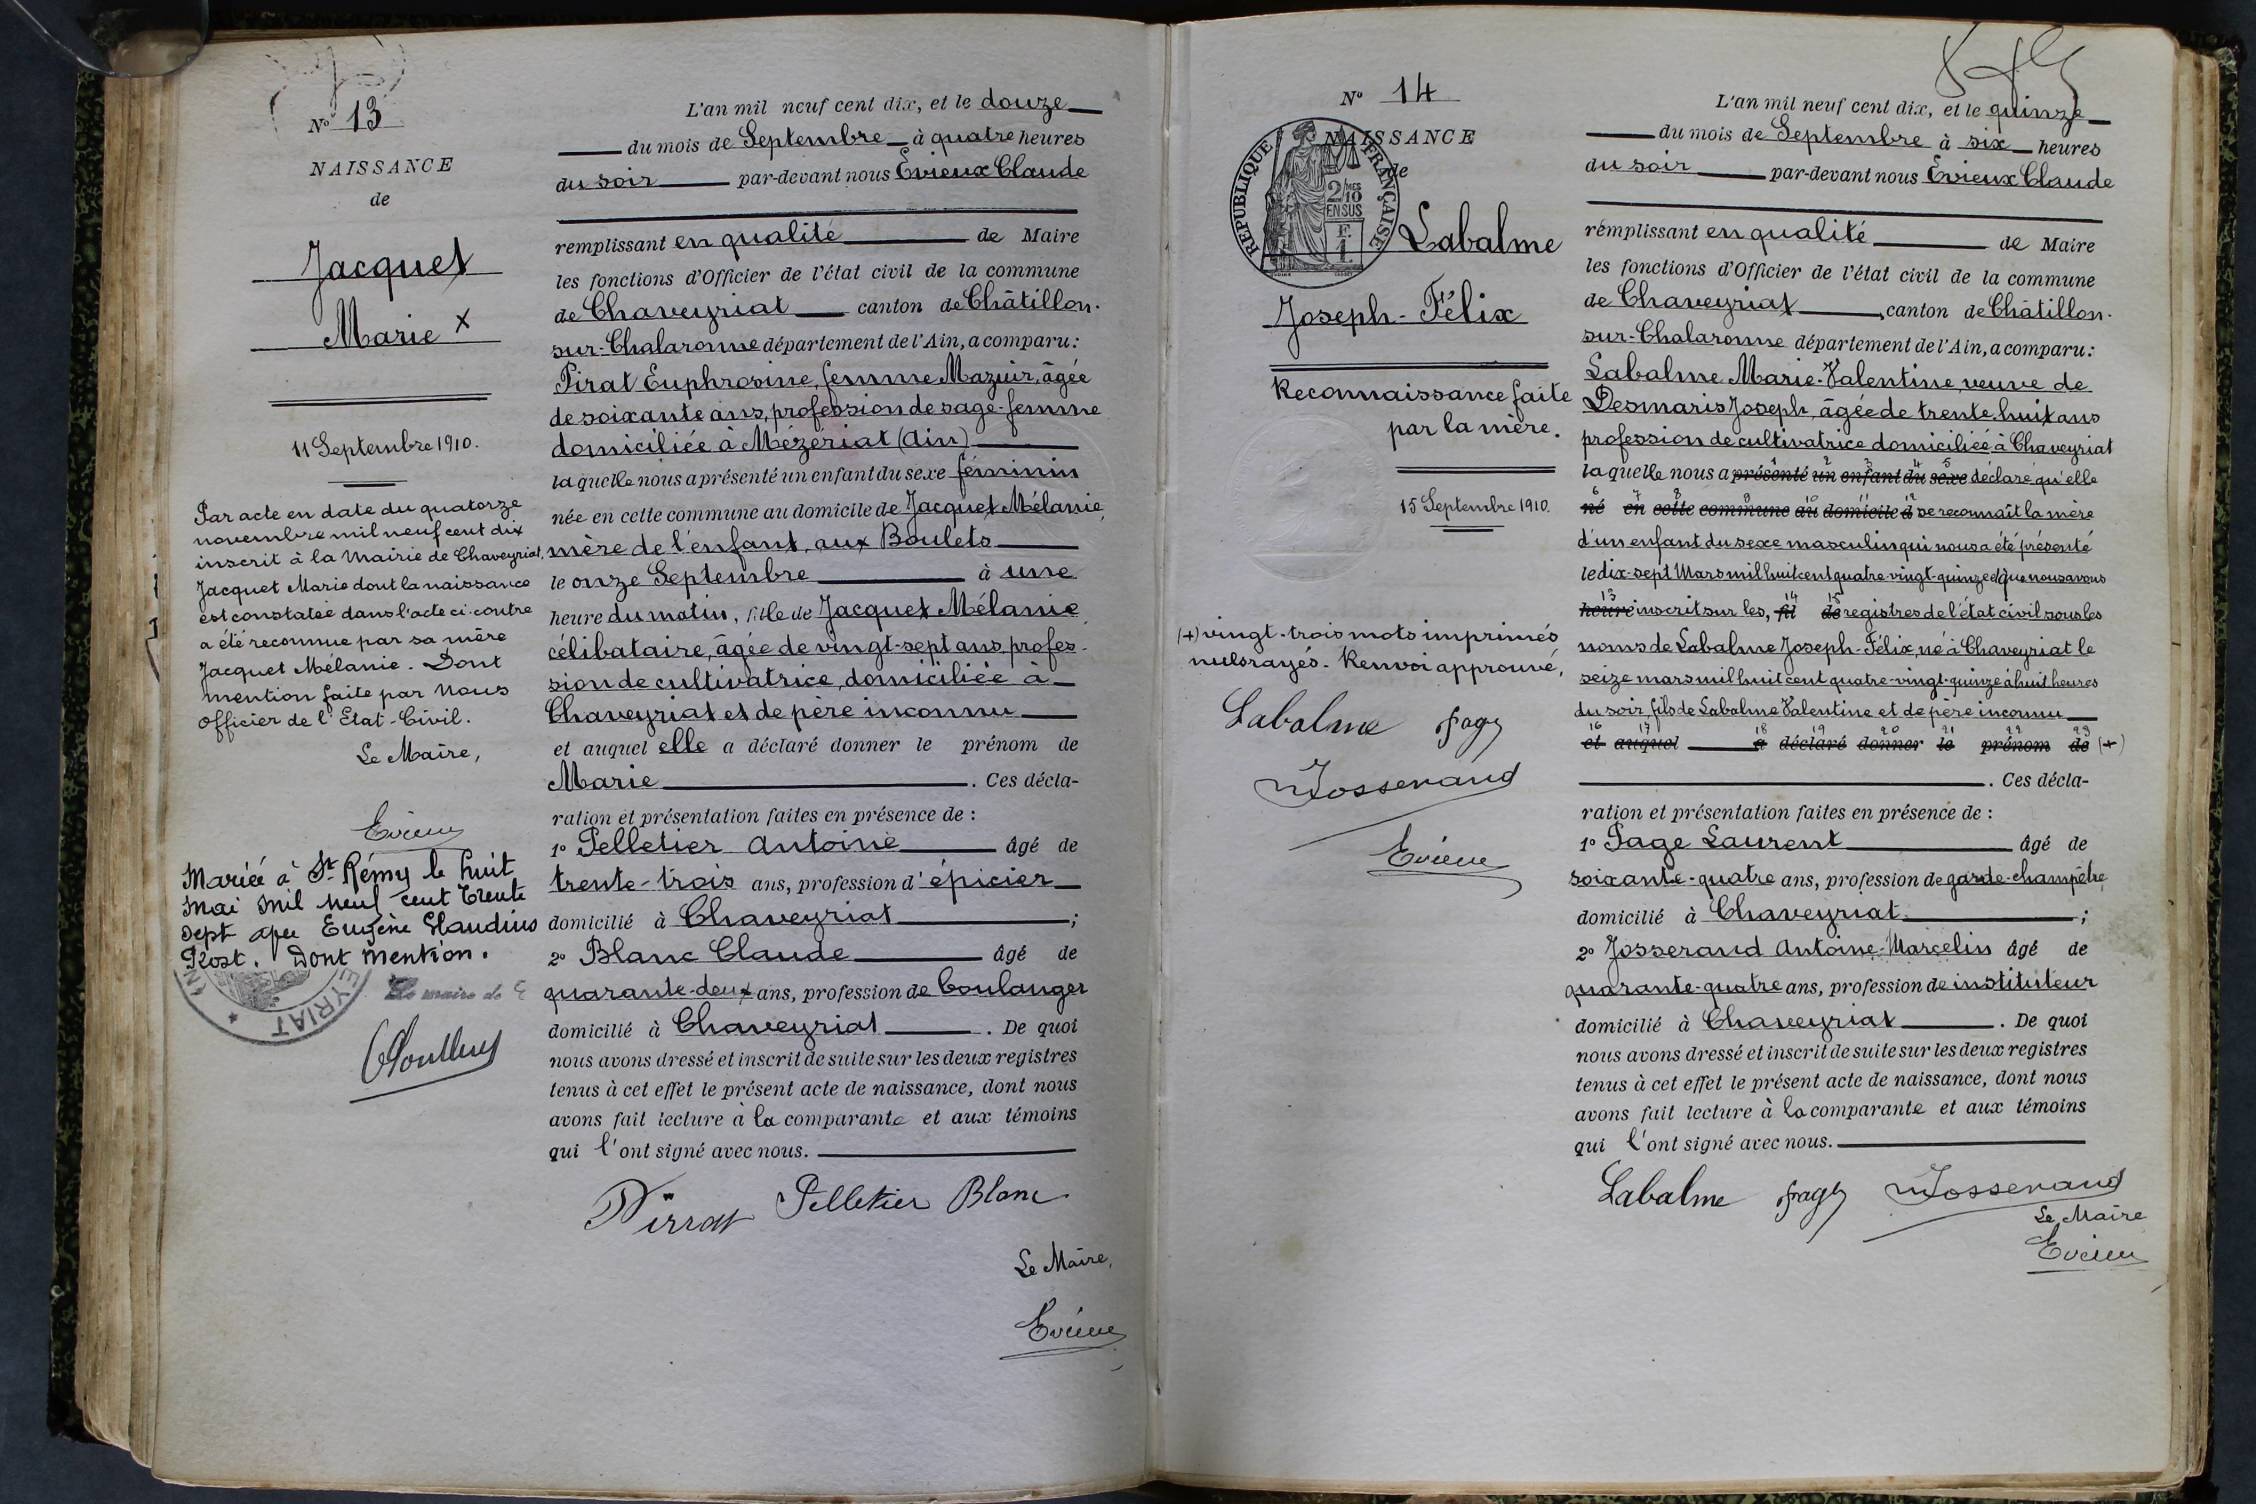 N° 13
NAISSANCE
de
Jacquet
Marie x
11 Septembre 1910.
Par acte en date du quatorze
novembre mil neuf cent dix
inscrit à la Mairie de Chaveyriat,
Jacquet Marie dont la naissance
est constatée dans l'acte ci-contre
a été reconnue par sa mère
Jacquet Mélanie. Dont
mention faite par Nous
officier de l'Etat-Civil.
Le Maire,
Evieux
Mariée à St Rémy le huit
Mai Mil neuf cent trente
sept avec Eugène Claudius
Dont mention.
Le maire de C
EYRIAT
L'an mil neuf cent dix, et le douze
du mois de Septembre à quatre heures
du soir par-devant nous Évieux Claude
remplissant en qualité de Maire
les fonctions d'Officier de l'état civil de la commune
de Chaveyriat canton de Châtillon-
sur-Chalaronne département de l'Ain, a comparu:
Pirat Euphrosine, femme Mazuir, âgée
de soixante ans, profession de sage-femme
domiciliée à Mézériat (Ain)
laquelle nous a présenté un enfant du sexe féminin
née en cette commune au domicile de Jacquet Mélanie,
mère de l'enfant, aux Boulets
le onze Septembre à une
heure du matin, fille de Jacquet Mélanie
célibataire, âgée de vingt-sept ans, profes-
sion de cultivatrice, domiciliée à
Chaveyriat et de père inconnu
et auquel elle a déclaré donner le prénom de
Marie . Ces décla-
ration et présentation faites en présence de :
1° Pelletier Antoine âgé de
trente-trois ans, profession d'épicier
domicilié à Chaveyriat ;
2° Blanc Claude âgé de
quarante-deux ans, profession de boulanger
domicilié à Chaveyriat . De quoi
nous avons dressé et inscrit de suite sur les deux registres
tenus à cet effet le présent acte de naissance, dont nous
avons fait lecture à la comparante et aux témoins
qui l'ont signé avec nous.
Pirrat Pelletier Blanc
Le Maire,
Evieux
N° 14
NAISSANCE
de
RÉPUBLIQUE FRANÇAISE
2/MES
10
EN SUS
F.
1.
Labalme
Joseph-Félix
Reconnaissance faite
par la mère.
15 Septembre 1910.
(+) vingt-trois mots imprimés
nuls rayés. Renvoi approuvé,
Labalme Page
Josserand
Evieux
L'an mil neuf cent dix, et le quinze
du mois de Septembre à six heures
du soir par-devant nous Évieux Claude
remplissant en qualité de Maire
les fonctions d'Officier de l'état civil de la commune
de Chaveyriat, canton de Châtillon-
sur-Chalaronne département de l'Ain, a comparu:
Labalme Marie-Valentine, veuve de
Desmaris Joseph, âgée de trente-huit ans
profession de cultivatrice domiciliée à Chaveyriat
1 2 3 4 5
laquelle nous a présenté un enfant du sexe déclaré qu'elle
6 7 8 9 10 11 12
né en cette commune au domicile d se reconnaît la mère
d'un enfant du sexe masculin qui nous a été présenté
le dix-sept Mars mil huit cent quatre-vingt-quinze et que nous avons
13 14 15
heure inscrit sur les, fil de registres de l'état civil sous les
noms de Labalme Joseph-Félix, né à Chaveyriat le
seize mars mil huit cent quatre-vingt-quinze à huit heures
du soir, fils de Labalme Valentine et de père inconnu
16 17 18 19 20 21 22 23
et auquel a déclaré donner le prénom de (+)
. Ces décla-
ration et présentation faites en présence de :
1° Page Laurent âgé de
soixante-quatre ans, profession de garde-champêtre
domicilié à Chaveyriat ;
2° Josserand Antoine-Marcelin âgé de
quarante-quatre ans, profession de instituteur
domicilié à Chaveyriat . De quoi
nous avons dressé et inscrit de suite sur les deux registres
tenus à cet effet le présent acte de naissance, dont nous
avons fait lecture à la comparante et aux témoins
qui l'ont signé avec nous.
Labalme Page Josserand
Le Maire
Evieux